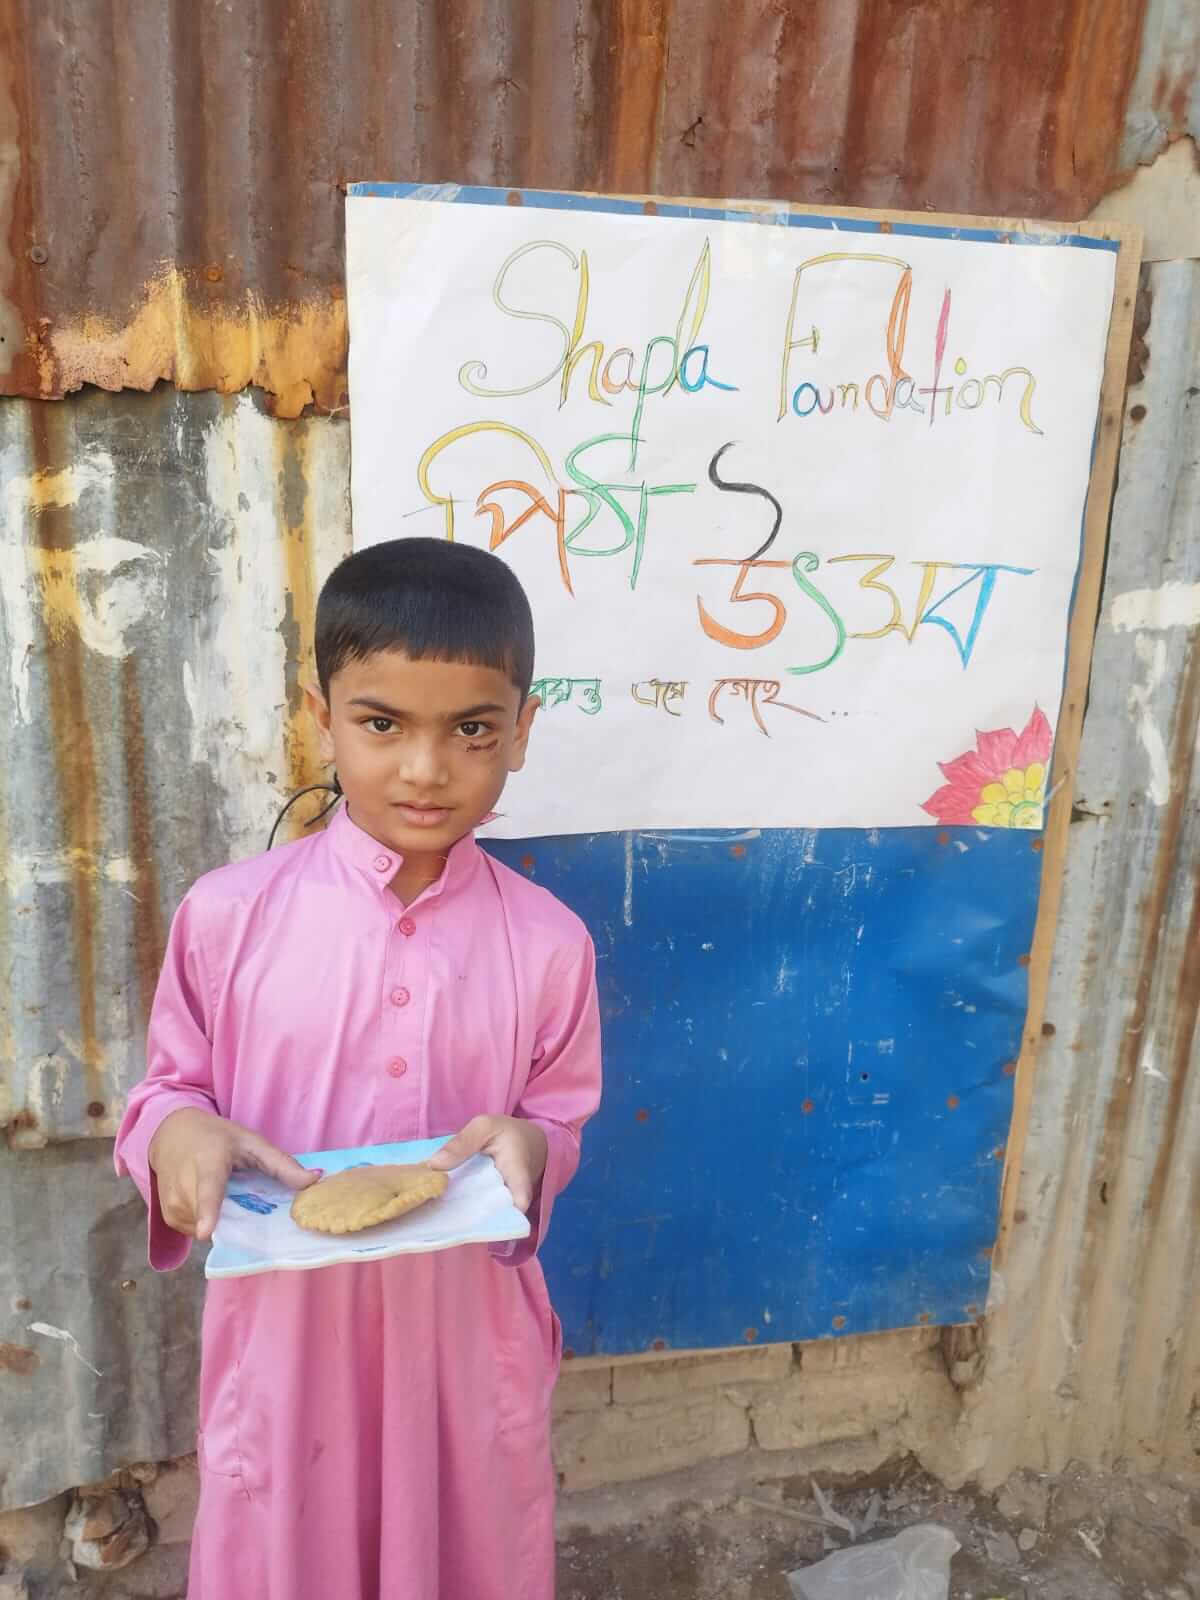 Shapla Foundation
পিঠা উৎসব
বসন্ত এসে গেছে...